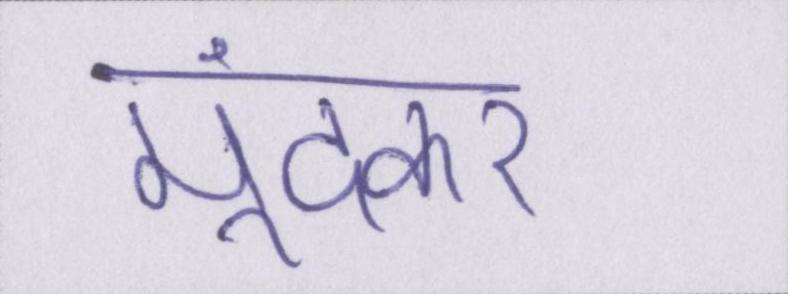 मूंदकर